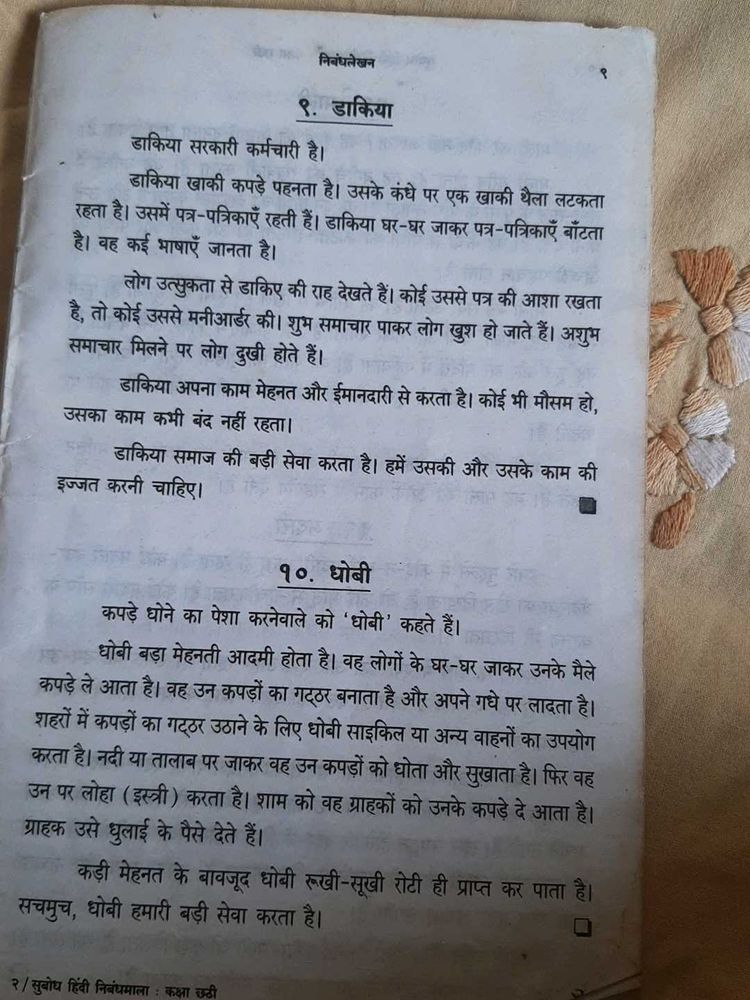 निबंधलेखन
९
९. डाकिया
डाकिया सरकारी कर्मचारी है।
डाकिया खाकी कपड़े पहनता है। उसके कंधे पर एक खाकी थैला लटकता
रहता है। उसमें पत्र-पत्रिकाएँ रहती हैं। डाकिया घर-घर जाकर पत्र-पत्रिकाएँ बाँटता
है। वह कई भाषाएँ जानता है।
लोग उत्सुकता से डाकिए की राह देखते हैं। कोई उससे पत्र की आशा रखता
है, तो कोई उससे मनीआर्डर की। शुभ समाचार पाकर लोग खुश हो जाते हैं। अशुभ
समाचार मिलने पर लोग दुखी होते हैं।
डाकिया अपना काम मेहनत और ईमानदारी से करता है। कोई भी मौसम हो,
उसका काम कभी बंद नहीं रहता।
डाकिया समाज की बड़ी सेवा करता है। हमें उसकी और उसके काम की
इज्जत करनी चाहिए।
१०. धोबी
कपड़े धोने का पेशा करनेवाले को 'धोबी' कहते हैं।
धोबी बड़ा मेहनती आदमी होता है। वह लोगों के घर-घर जाकर उनके मैले
कपड़े ले आता है। वह उन कपड़ों का गट्ठर बनाता है और अपने गधे पर लादता है।
शहरों में कपड़ों का गट्ठर उठाने के लिए धोबी साइकिल या अन्य वाहनों का उपयोग
करता है। नदी या तालाब पर जाकर वह उन कपड़ों को धोता और सुखाता है। फिर वह
उन पर लोहा (इस्त्री) करता है। शाम को वह ग्राहकों को उनके कपड़े दे आता है।
ग्राहक उसे धुलाई के पैसे देते हैं।
कड़ी मेहनत के बावजूद धोबी रूखी-सूखी रोटी ही प्राप्त कर पाता है।
सचमुच, धोबी हमारी बड़ी सेवा करता है।
२/सुबोध हिंदी निबंधमाला : कक्षा छठी